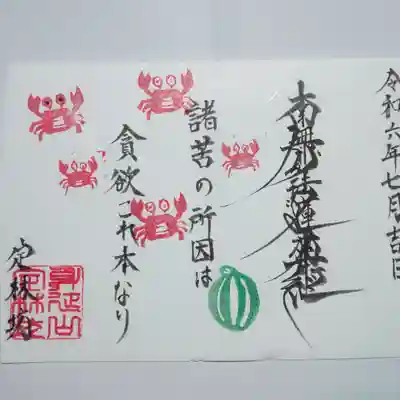 令和六年七月吉日
南無妙法蓮華経
諸苦の所因は
貪欲これ本なり
定林坊
身延山
定林坊